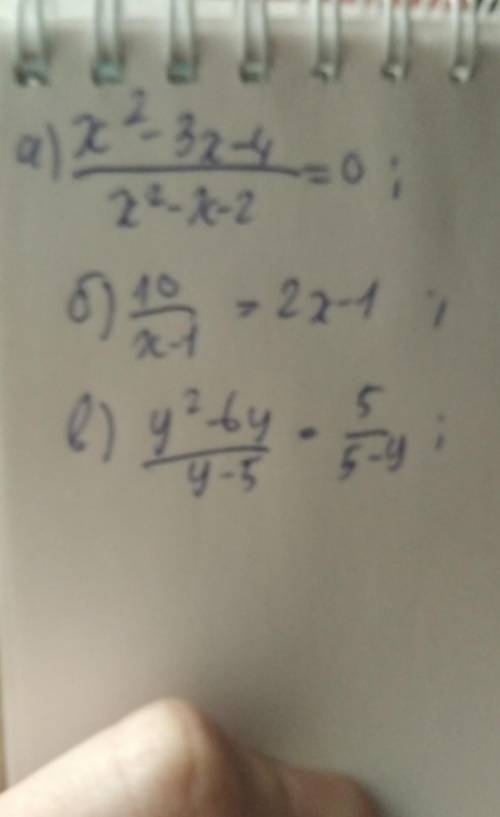 а) x² - 3x - 4 / x² - x - 2 = 0 ;
б) 10 / x - 1 = 2x - 1 ;
в) y² - 6y / y - 5 = 5 / 5 - y ;